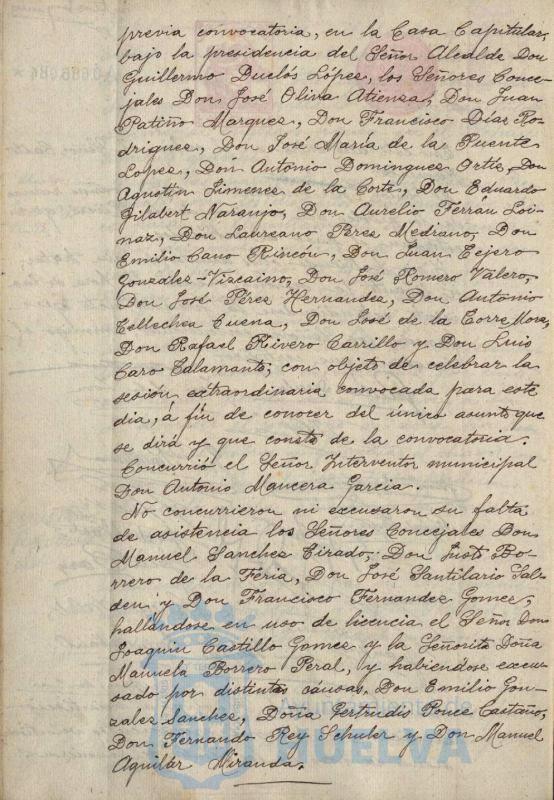 previa convocatoria, en la Casa Capitular,
bajo la presidencia del Señor Alcalde Don
Guillermo Duclós López, los Señores Conce-
jales Don José Oliva Atienza, Don Juan
Patiño Marquez, Don Francisco Diaz Ro-
driguez, Don José María de la Puente
Lopez, Don Antonio Dominguez Ortiz, Don
Agustín Jimenez de la Corte, Don Eduardo
Gilabert Naranjo, Don Aurelio Ferrán Loi-
naz, Don Laureano Perez Medrano, Don
Emilio Cano Rincón, Don Juan Tejero
González-Vizcaino, Don José Romero Valero,
Don José Pérez Hernandez, Don Antonio
Tellechea Cuena, Don José de la Torre Mora,
Don Rafael Rivero Carrillo y Don Luis
Caro Salamanto; con objeto de celebrar la
sesión extraordinaria convocada para este
dia, á fin de conocer del único asunto que
se dirá y que consta de la convocatoria.
Concurrió el Señor Interventor municipal
Don Antonio Mancera Garcia.
No concurrieron ni excusaron su falta
de asistencia los Señores Concejales Don
Manuel Sanchez Tirado, Don Justo Bo-
rrero de la Feria, Don José Santilario Sal-
den y Don Francisco Fernandez Gomez;
hallandose en uso de licencia el Señor Don
Joaquin Castillo Gomez y la Señorita Doña
Manuela Borrero Peral, y habiendose excu-
sado por distintas causas Don Emilio Gon-
zalez Sanchez, Doña Gertrudis Ponce Caetaño,
Don Fernando Rey Schuler y Don Manuel
Aguilar Miranda.
HUELVA